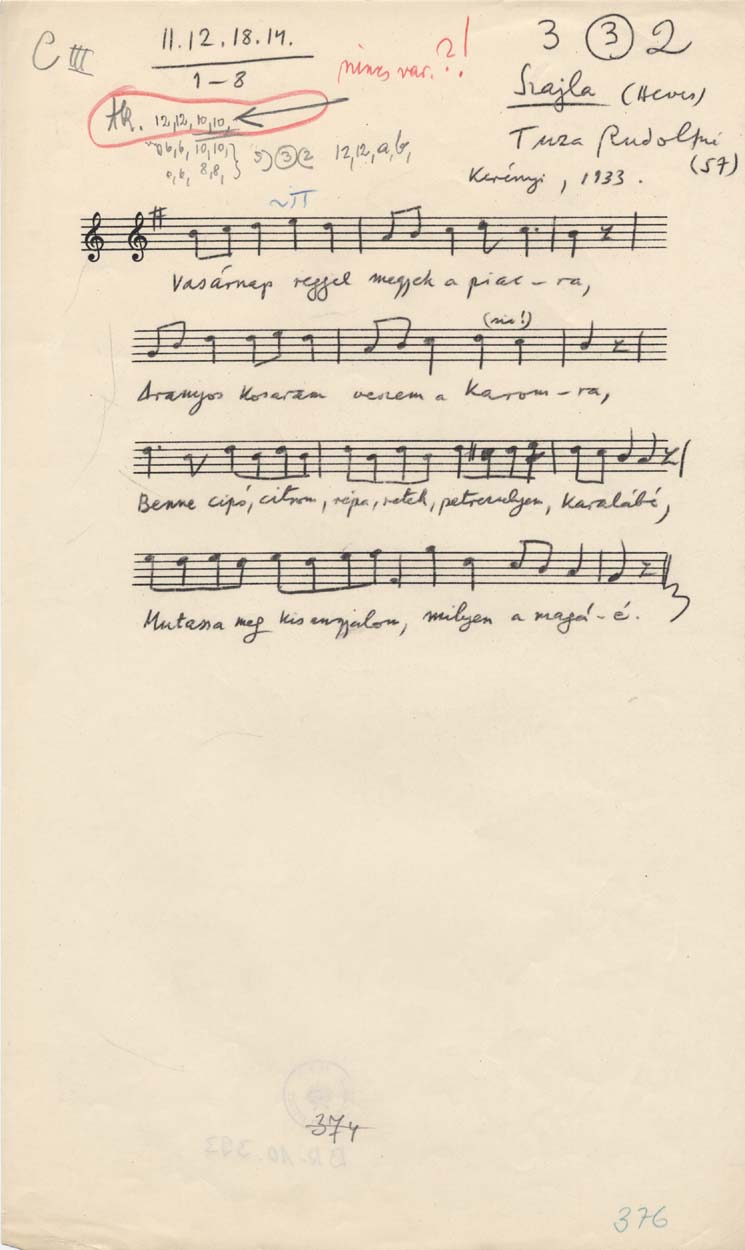 C III
11.12.18.14.
1-8
nincs var. ?!
3 ③ 2
Szajla (Heves)
Tuza Rudolfné
(57)
Kerényi, 1933.
12,12,10,10,
6,6, 10,10,}
6,6, 8,8, }
5) ③ 2 12,12,a,b,
~π
Vasárnap reggel megyek a piac-ra,
(sic!)
Aranyos kosaram veszem a karom-ra,
Benne cipó, citrom, répa, retek, petrezselyem, karalábé,
Mutassa meg kisangyalom, milyen a magá-é.
374
376